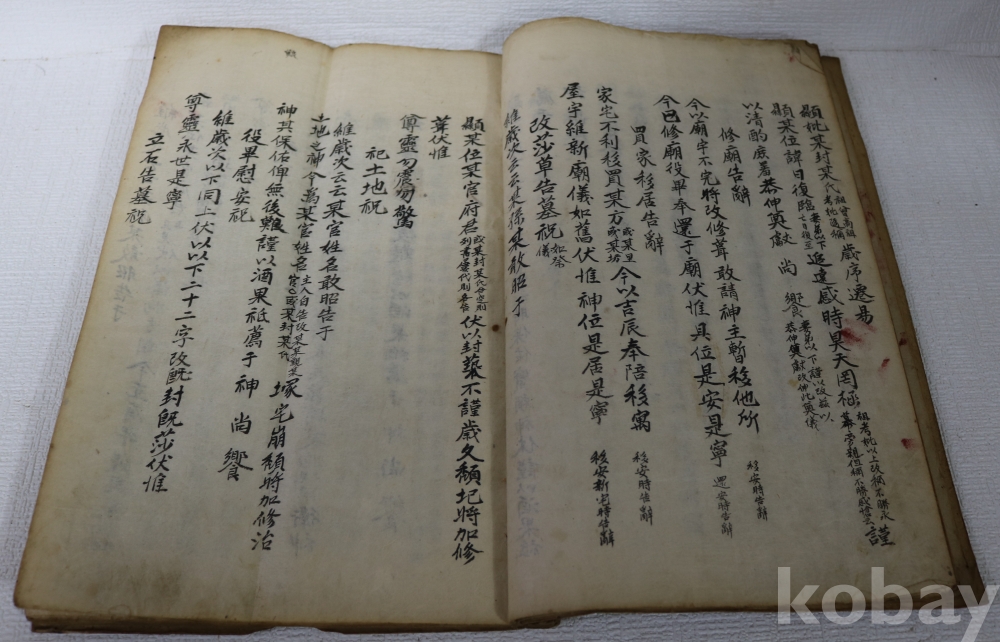 顯妣某封某氏 歲序遷易
顯某位諱日復臨 追遠感時昊天罔極 謹
以清酌庶羞恭伸奠獻 尚 饗
修廟告辭
今以廟宇不完將改修葺敢請神主暫移他所 移安時告辭
今已修廟役畢奉還于廟伏惟具位是安是寧 還安時告辭
買家移居告辭
家宅不利移買某方 或某里 或某坊 今以吉辰奉陪移寓 移安時告辭
屋宇維新廟儀如舊伏惟 神位是居是寧 移安新宅時告辭
改莎草告墓祝 如祭儀
維歲次云云某孫某敢昭于
顯某位某官府君 伏以封築不謹歲久頹圮將加修
葺伏惟
尊靈勿震勿驚
祀土地祝
維歲次云云某官姓名敢昭告于
土地之神今爲某官姓名 塚宅崩頹將加修治
神其保佑俾無後難謹以酒果祗薦于神 尚 饗
役畢慰安祝
維歲次以下同上伏以以下二十二字改旣封旣莎伏惟
尊靈永世是寧
立石告墓祝
kobay